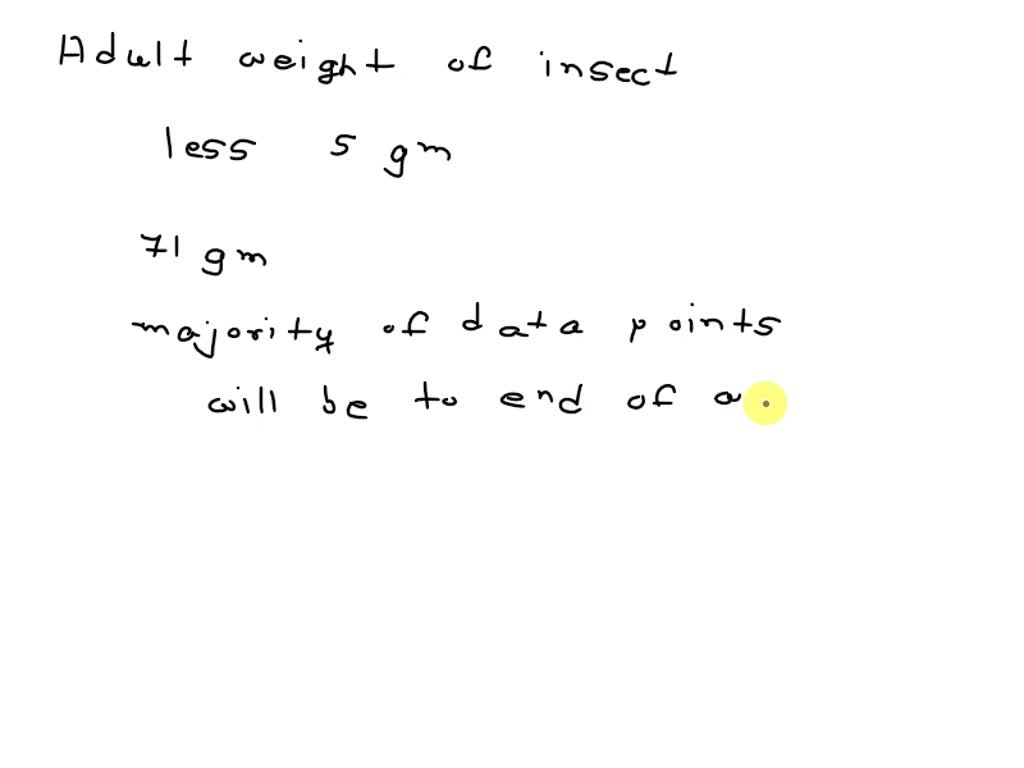 Adult weight of insect
less 5 gm
71 gm
majority of data points
will be to end of a